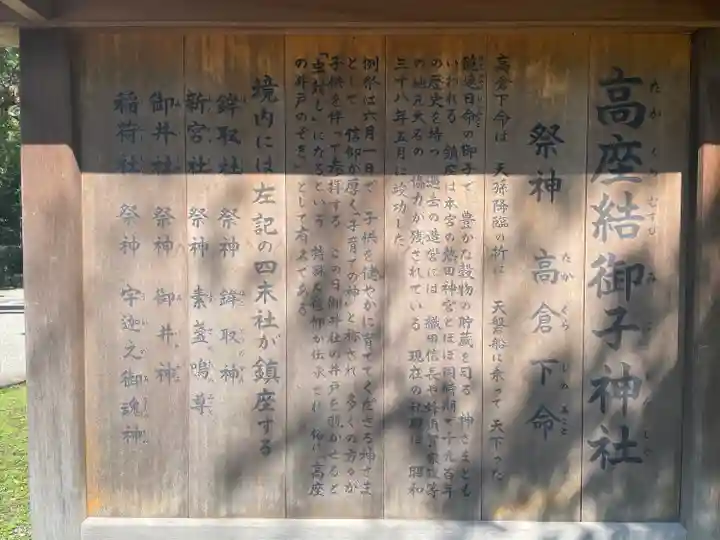 高座結御子神社
たかくらむすびみこじんじゃ
祭神 高倉下命
たかくらじのみこと
高倉下命は 天孫降臨の折に 天磐船に乗って 天下った
饒速日命の御子で 豊かな穀物の貯蔵を司る 神さまとも
いわれる 鎮座は本宮の熱田神宮とほぼ同時期で千九百年
の歴史を持つ 過去の造営には 織田信長や蜂須賀家政等
の地元大名の 協力が残されている 現在の社殿は 昭和
三十八年五月に竣功した
例祭は六月一日で 子供を健やかに育ててくださる神さま
として 信仰が厚く「子育ての神」と称され 多くの方々が
子供を伴って参拝する この日御井社の井戸を覗かせると
「虫封じ」になるという 特殊な信仰が伝承され 俗に「高座
の井戸のぞき」として有名である
境内には左記の四末社が鎮座する
鉾取社 祭神 鉾取神
新宮社 祭神 素盞嗚尊
御井社 祭神 御井神
稲荷社 祭神 宇迦之御魂神